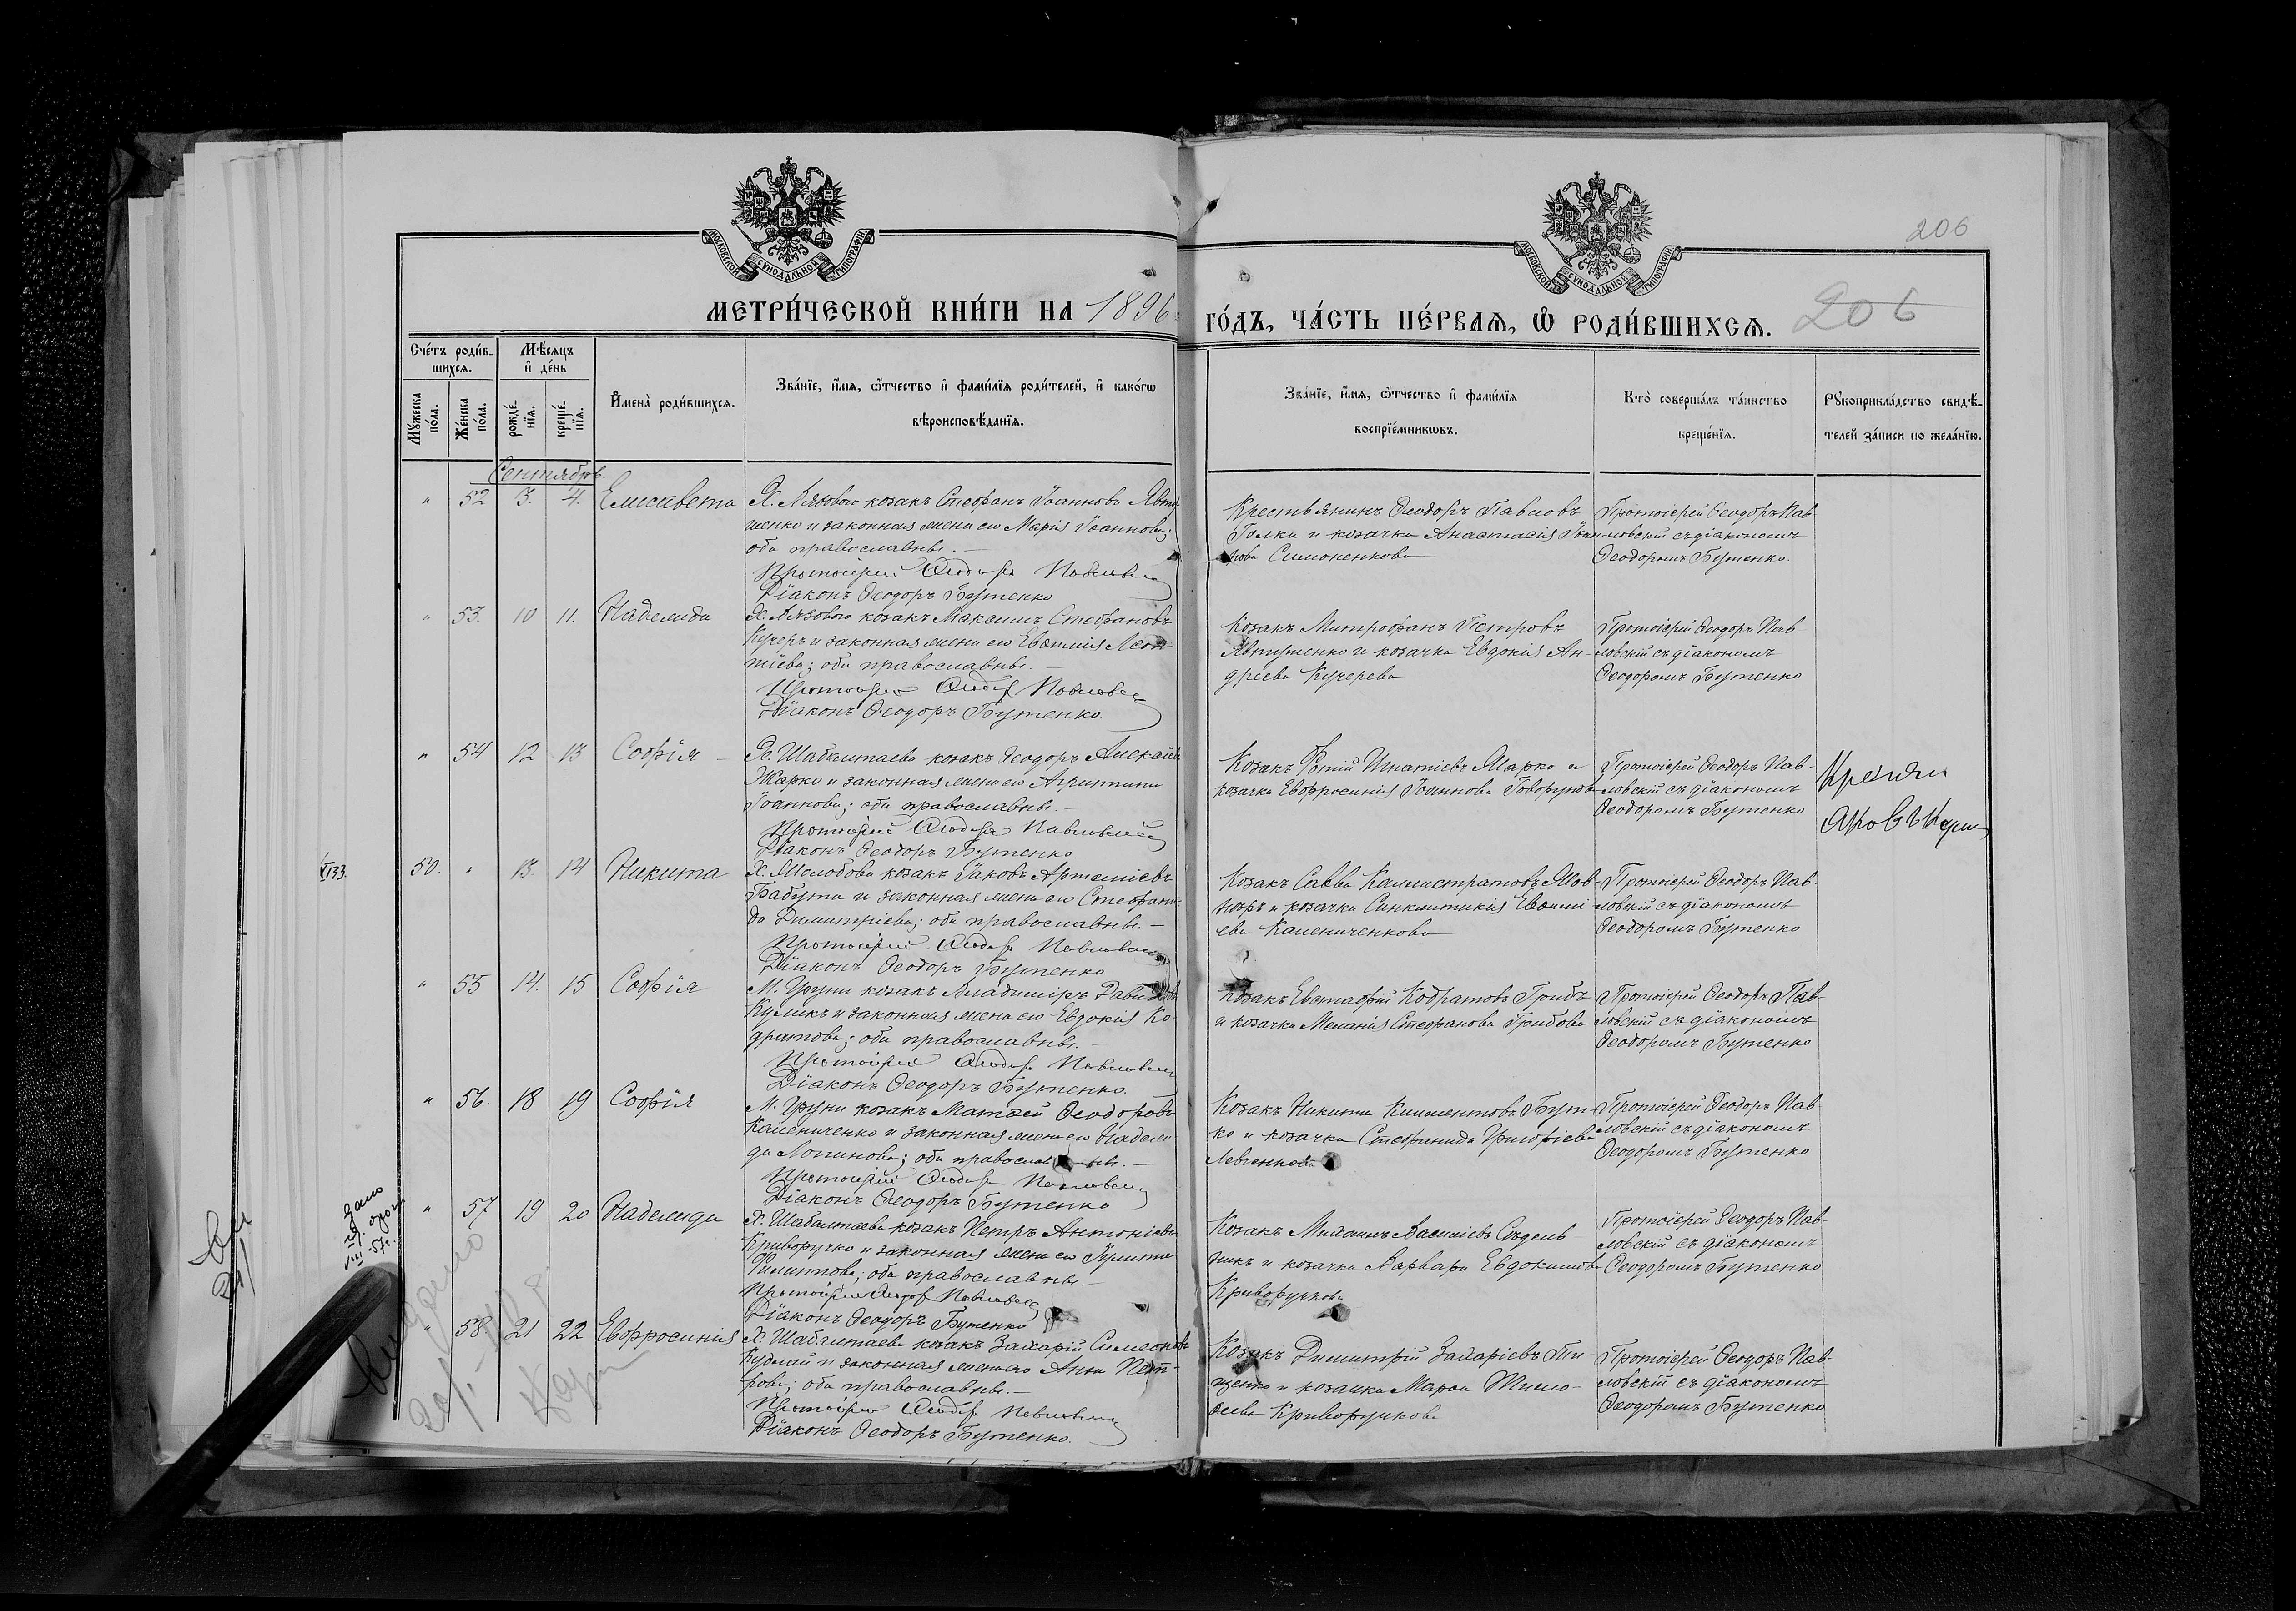 МОСКОВСКОЙ СѴНОДАЛЬНОЙ ТИПОГРАФІИ
МОСКОВСКОЙ СѴНОДАЛЬНОЙ ТИПОГРАФІИ
206
МЕТРИ́ЧЕСКОЙ КНИ́ГИ НА 1896
ГО́ДЪ, ЧА́СТЬ ПЕ́РВАЯ, Ѡ҆ РОДИ́ВШИХСЯ.
206
Сче́тъ роди́в-
шихся.
Мѣ́сяцъ
и҆ де́нь
Му́жеска
по́ла.
Же́нска
по́ла.
рожде́-
нїя.
креще́-
нїя.
И҆мена̀ роди́вшихся.
Зва́нїе, и҆́мя, ѻ҆́тчество и҆ фами́лїя роди́телей, и҆ како́гѡ
вѣроисповѣ́данїя.
Зва́нїе, и҆́мя, ѻ҆́тчество и҆ фами́лїя
воспрїе́мникѡвъ.
Кто̀ соверша́лъ та́инство
креще́нїя.
Рꙋкоприкла́дство свидѣ́-
телей за́писи по жела́нїю.
Сентябрь.
" 52 3. 4. Елисавета
Х. Лязоваго козакъ Стефанъ Іоанновъ Явту
шенко и законная жена его Марія Іоаннова;
оба православные. —
Протоіерей Ѳеодоръ Павловскій
Діаконъ Ѳеодоръ Бутенко
Крестьянинъ Ѳеодоръ Павловъ
Голка и козачка Анастасія Іоан-
нова Симоненкова
Протоіерей Ѳеодоръ Пав-
ловскій съ діакономъ
Ѳеодоромъ Бутенко.
" 53. 10 11. Надежда
Х. Лязоваго козакъ Максимъ Стефановъ
Кучеръ и законная жена его Евѳимія Леон-
тіева; оба православные. —
Протоіерей Ѳеодоръ Павловскій
Діаконъ Ѳеодоръ Бутенко.
Козакъ Митрофанъ Петровъ
Явтушенко и козачка Евдокія Ан-
дреева Кучерева
Протоіерей Ѳеодоръ Пав
ловскій съ діакономъ
Ѳеодоромъ Бутенко
" 54 12 13 Софія —
Х. Шабалтаева козакъ Ѳеодоръ Алексѣевъ
Жарко и законная жена его Агриппина
Іоаннова; оба православные. —
Протоіерей Ѳеодоръ Павловскій
Діаконъ Ѳеодоръ Бутенко
Козакъ Фотій Игнатіевъ Жарко и
козачка Евфросинія Іоаннова
Протоіерей Ѳеодоръ Пав-
ловскій съ діакономъ
Ѳеодоромъ Бутенко
Яковъ
50. " 13. 14 Никита
Х. Молодова козакъ Іаковъ Артеміевъ
Бабута и законная жена его Стефани-
да Димитріева; оба православные. —
Протоіерей Ѳеодоръ Павловскій
Діаконъ Ѳеодоръ Бутенко
Козакъ Савва Каллистратовъ
и козачка Синклитикія Евѳимі
ева Камениченкова
Протоіерей Ѳеодоръ Пав-
ловскій съ діакономъ
Ѳеодоромъ Бутенко
" 55 14. 15 Софія
М. Груни козакъ Владиміръ Давидовъ
Куликъ и законная жена его Евдокія Ко-
дратова; оба православные. —
Протоіерей Ѳеодоръ Павловскій
Діаконъ Ѳеодоръ Бутенко.
Козакъ Евстафій Кодратовъ Грибъ
и козачка Меланія Стефанова Грибова
Протоіерей Ѳеодоръ Пав-
ловскій съ діакономъ
Ѳеодоромъ Бутенко
" 56. 18 19 Софія
М. Груни козакъ Матѳей Ѳеодоровъ
Камениченко и законная жена его Надеж-
да Логинова; оба православные. —
Протоіерей Ѳеодоръ Павловскій
Діаконъ Ѳеодоръ Бутенко
Козакъ Никита Климентовъ Бут-
ко и козачка Стефанида Григоріева
Левченкова
Протоіерей Ѳеодоръ Пав
ловскій съ діакономъ
Ѳеодоромъ Бутенко
" 57 19 20 Надежда
Х. Шабалтаева козакъ Петръ Антоніевъ
Криворучко и законная жена его Іулитта
Филиппова; оба православные. —
Протоіерей Ѳеодоръ Павловскій
Діаконъ Ѳеодоръ Бутенко
Козакъ Михаилъ Василіевъ Сѣдель
никъ и козачка Варвара Евдокимова
Криворучкова
Протоіерей Ѳеодоръ Пав-
ловскій съ діакономъ
Ѳеодоромъ Бутенко
" 58. 21 22 Евфросинія
Х. Шабалтаева козакъ Захарій Симеоновъ
и законная жена его Анна Пет-
рова; оба православные. —
Протоіерей Ѳеодоръ Павловскій
Діаконъ Ѳеодоръ Бутенко.
Козакъ Димитрій Захаріевъ Ти-
щенко и козачка Марѳа Тимо-
ѳеева Криворучкова
Протоіерей Ѳеодоръ Пав-
ловскій съ діакономъ
Ѳеодоромъ Бутенко